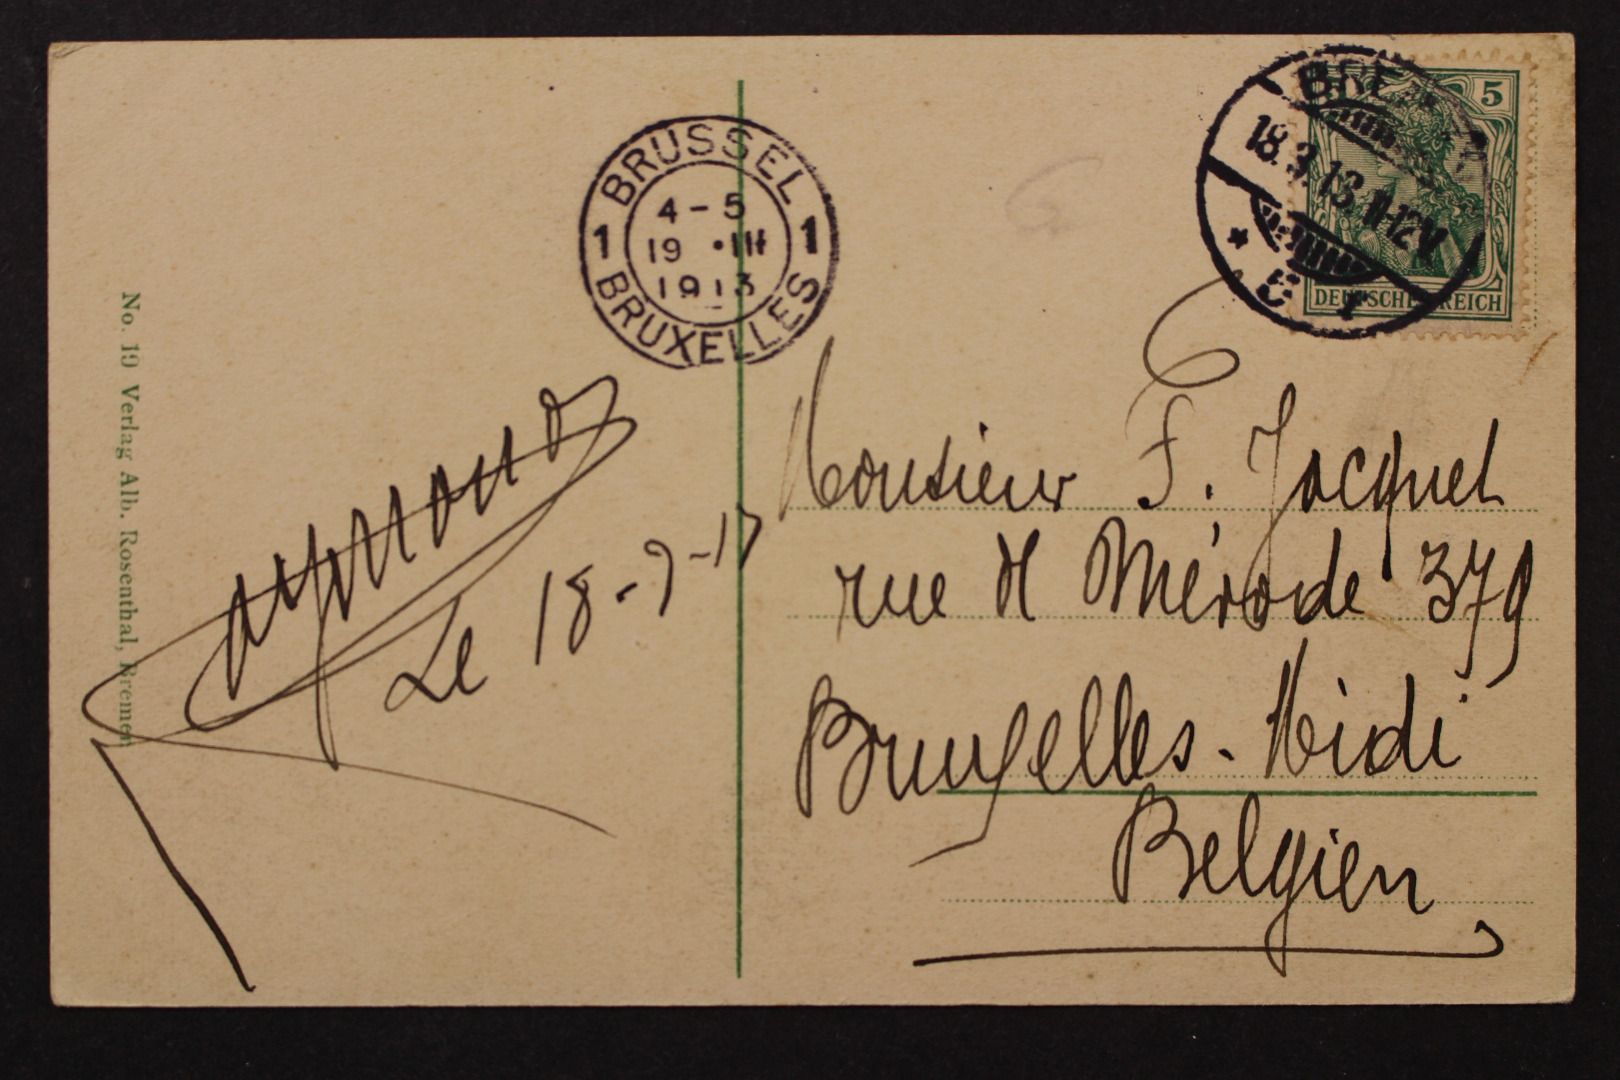 No. 19 Verlag Alb. Rosenthal, Bremen
BRUSSEL
1 1
4-5
19 • III
1913
BRUXELLES
5
DEUTSCHES REICH
18.3.13. 11-12V.
Raymond
Le 18-3-13
Monsieur F. Jacquet
rue de Mérode 379
Bruxelles - Midi
Belgien